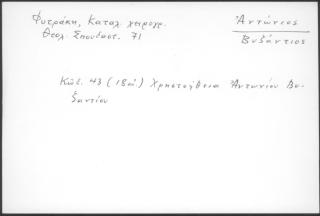 Φυτράκη, Καταλ. χειρογρ.
Θεολ. Σπουδαστ. 71
Ἀντώνιος
Βυζάντιος
Κῶδ. 43 (18 αἰ.) Χρηστοήθεια Ἀντωνίου Βυ-
ζαντίου